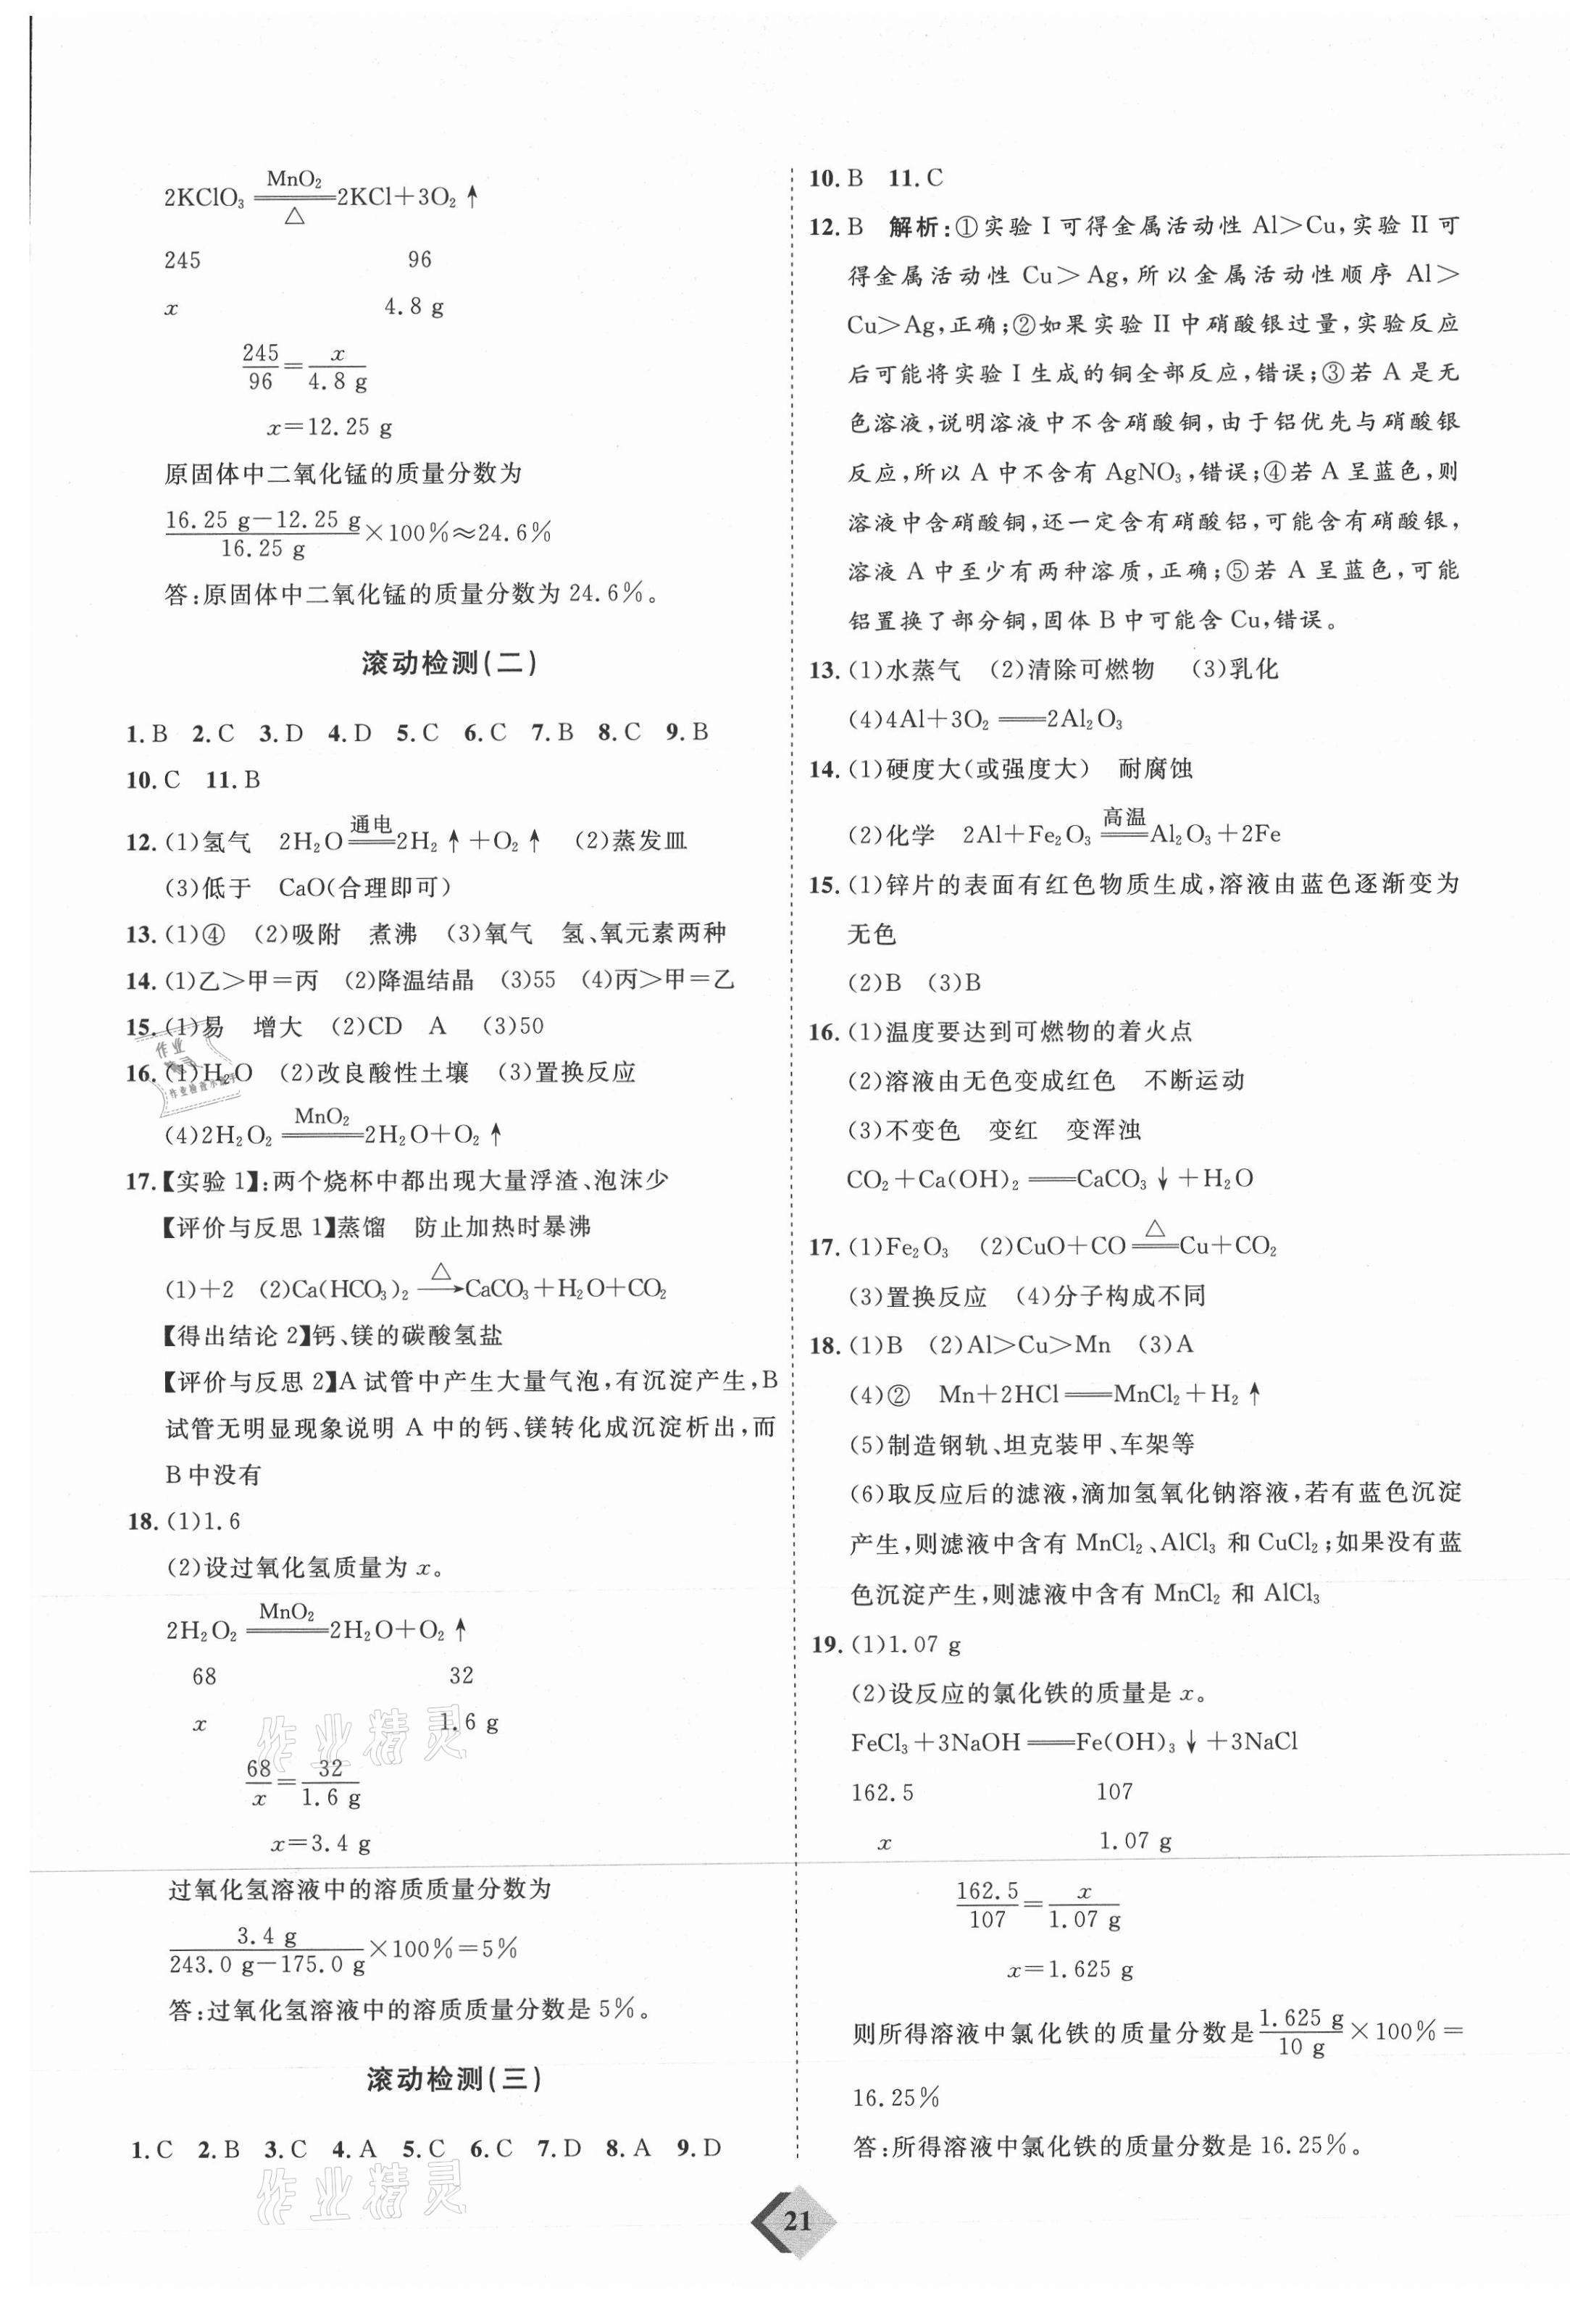 2KClO₃ MnO₂ ══ △ 2KCl+3O₂↑
245 96
x 4.8 g
245/96 = x/4.8 g
x=12.25 g
原固体中二氧化锰的质量分数为
(16.25 g-12.25 g)/16.25 g ×100%≈24.6%
答:原固体中二氧化锰的质量分数为 24.6%。
滚动检测(二)
1. B 2. C 3. D 4. D 5. C 6. C 7. B 8. C 9. B
10. C 11. B
12. (1)氢气 2H₂O 通电══ 2H₂↑+O₂↑ (2)蒸发皿
(3)低于 CaO(合理即可)
13. (1)④ (2)吸附 煮沸 (3)氧气 氢、氧元素两种
14. (1)乙>甲=丙 (2)降温结晶 (3)55 (4)丙>甲=乙
15. (1)易 增大 (2)CD A (3)50
16. (1)H₂O (2)改良酸性土壤 (3)置换反应
(4)2H₂O₂ MnO₂══ 2H₂O+O₂↑
17.【实验 1】:两个烧杯中都出现大量浮渣、泡沫少
【评价与反思 1】蒸馏 防止加热时暴沸
(1)+2 (2)Ca(HCO₃)₂ △→ CaCO₃+H₂O+CO₂
【得出结论 2】钙、镁的碳酸氢盐
【评价与反思 2】A 试管中产生大量气泡,有沉淀产生,B
试管无明显现象说明 A 中的钙、镁转化成沉淀析出,而
B 中没有
18. (1)1.6
(2)设过氧化氢质量为 x。
2H₂O₂ MnO₂══ 2H₂O+O₂↑
68 32
x 1.6 g
68/x = 32/1.6 g
x=3.4 g
过氧化氢溶液中的溶质质量分数为
3.4 g/(243.0 g-175.0 g) ×100%=5%
答:过氧化氢溶液中的溶质质量分数是 5%。
滚动检测(三)
1. C 2. B 3. C 4. A 5. C 6. C 7. D 8. A 9. D
10. B 11. C
12. B 解析:①实验 I 可得金属活动性 Al>Cu,实验 II 可
得金属活动性 Cu>Ag,所以金属活动性顺序 Al>
Cu>Ag,正确;②如果实验 II 中硝酸银过量,实验反应
后可能将实验 I 生成的铜全部反应,错误;③若 A 是无
色溶液,说明溶液中不含硝酸铜,由于铝优先与硝酸银
反应,所以 A 中不含有 AgNO₃,错误;④若 A 呈蓝色,则
溶液中含硝酸铜,还一定含有硝酸铝,可能含有硝酸银,
溶液 A 中至少有两种溶质,正确;⑤若 A 呈蓝色,可能
铝置换了部分铜,固体 B 中可能含 Cu,错误。
13. (1)水蒸气 (2)清除可燃物 (3)乳化
(4)4Al+3O₂══2Al₂O₃
14. (1)硬度大(或强度大) 耐腐蚀
(2)化学 2Al+Fe₂O₃ 高温══ Al₂O₃+2Fe
15. (1)锌片的表面有红色物质生成,溶液由蓝色逐渐变为
无色
(2)B (3)B
16. (1)温度要达到可燃物的着火点
(2)溶液由无色变成红色 不断运动
(3)不变色 变红 变浑浊
CO₂+Ca(OH)₂══CaCO₃↓+H₂O
17. (1)Fe₂O₃ (2)CuO+CO △══ Cu+CO₂
(3)置换反应 (4)分子构成不同
18. (1)B (2)Al>Cu>Mn (3)A
(4)② Mn+2HCl══MnCl₂+H₂↑
(5)制造钢轨、坦克装甲、车架等
(6)取反应后的滤液,滴加氢氧化钠溶液,若有蓝色沉淀
产生,则滤液中含有 MnCl₂、AlCl₃ 和 CuCl₂;如果没有蓝
色沉淀产生,则滤液中含有 MnCl₂ 和 AlCl₃
19. (1)1.07 g
(2)设反应的氯化铁的质量是 x。
FeCl₃+3NaOH══Fe(OH)₃↓+3NaCl
162.5 107
x 1.07 g
162.5/107 = x/1.07 g
x=1.625 g
则所得溶液中氯化铁的质量分数是 1.625 g/10 g ×100%=
16.25%
答:所得溶液中氯化铁的质量分数是 16.25%。
作业精灵
作业精灵
21